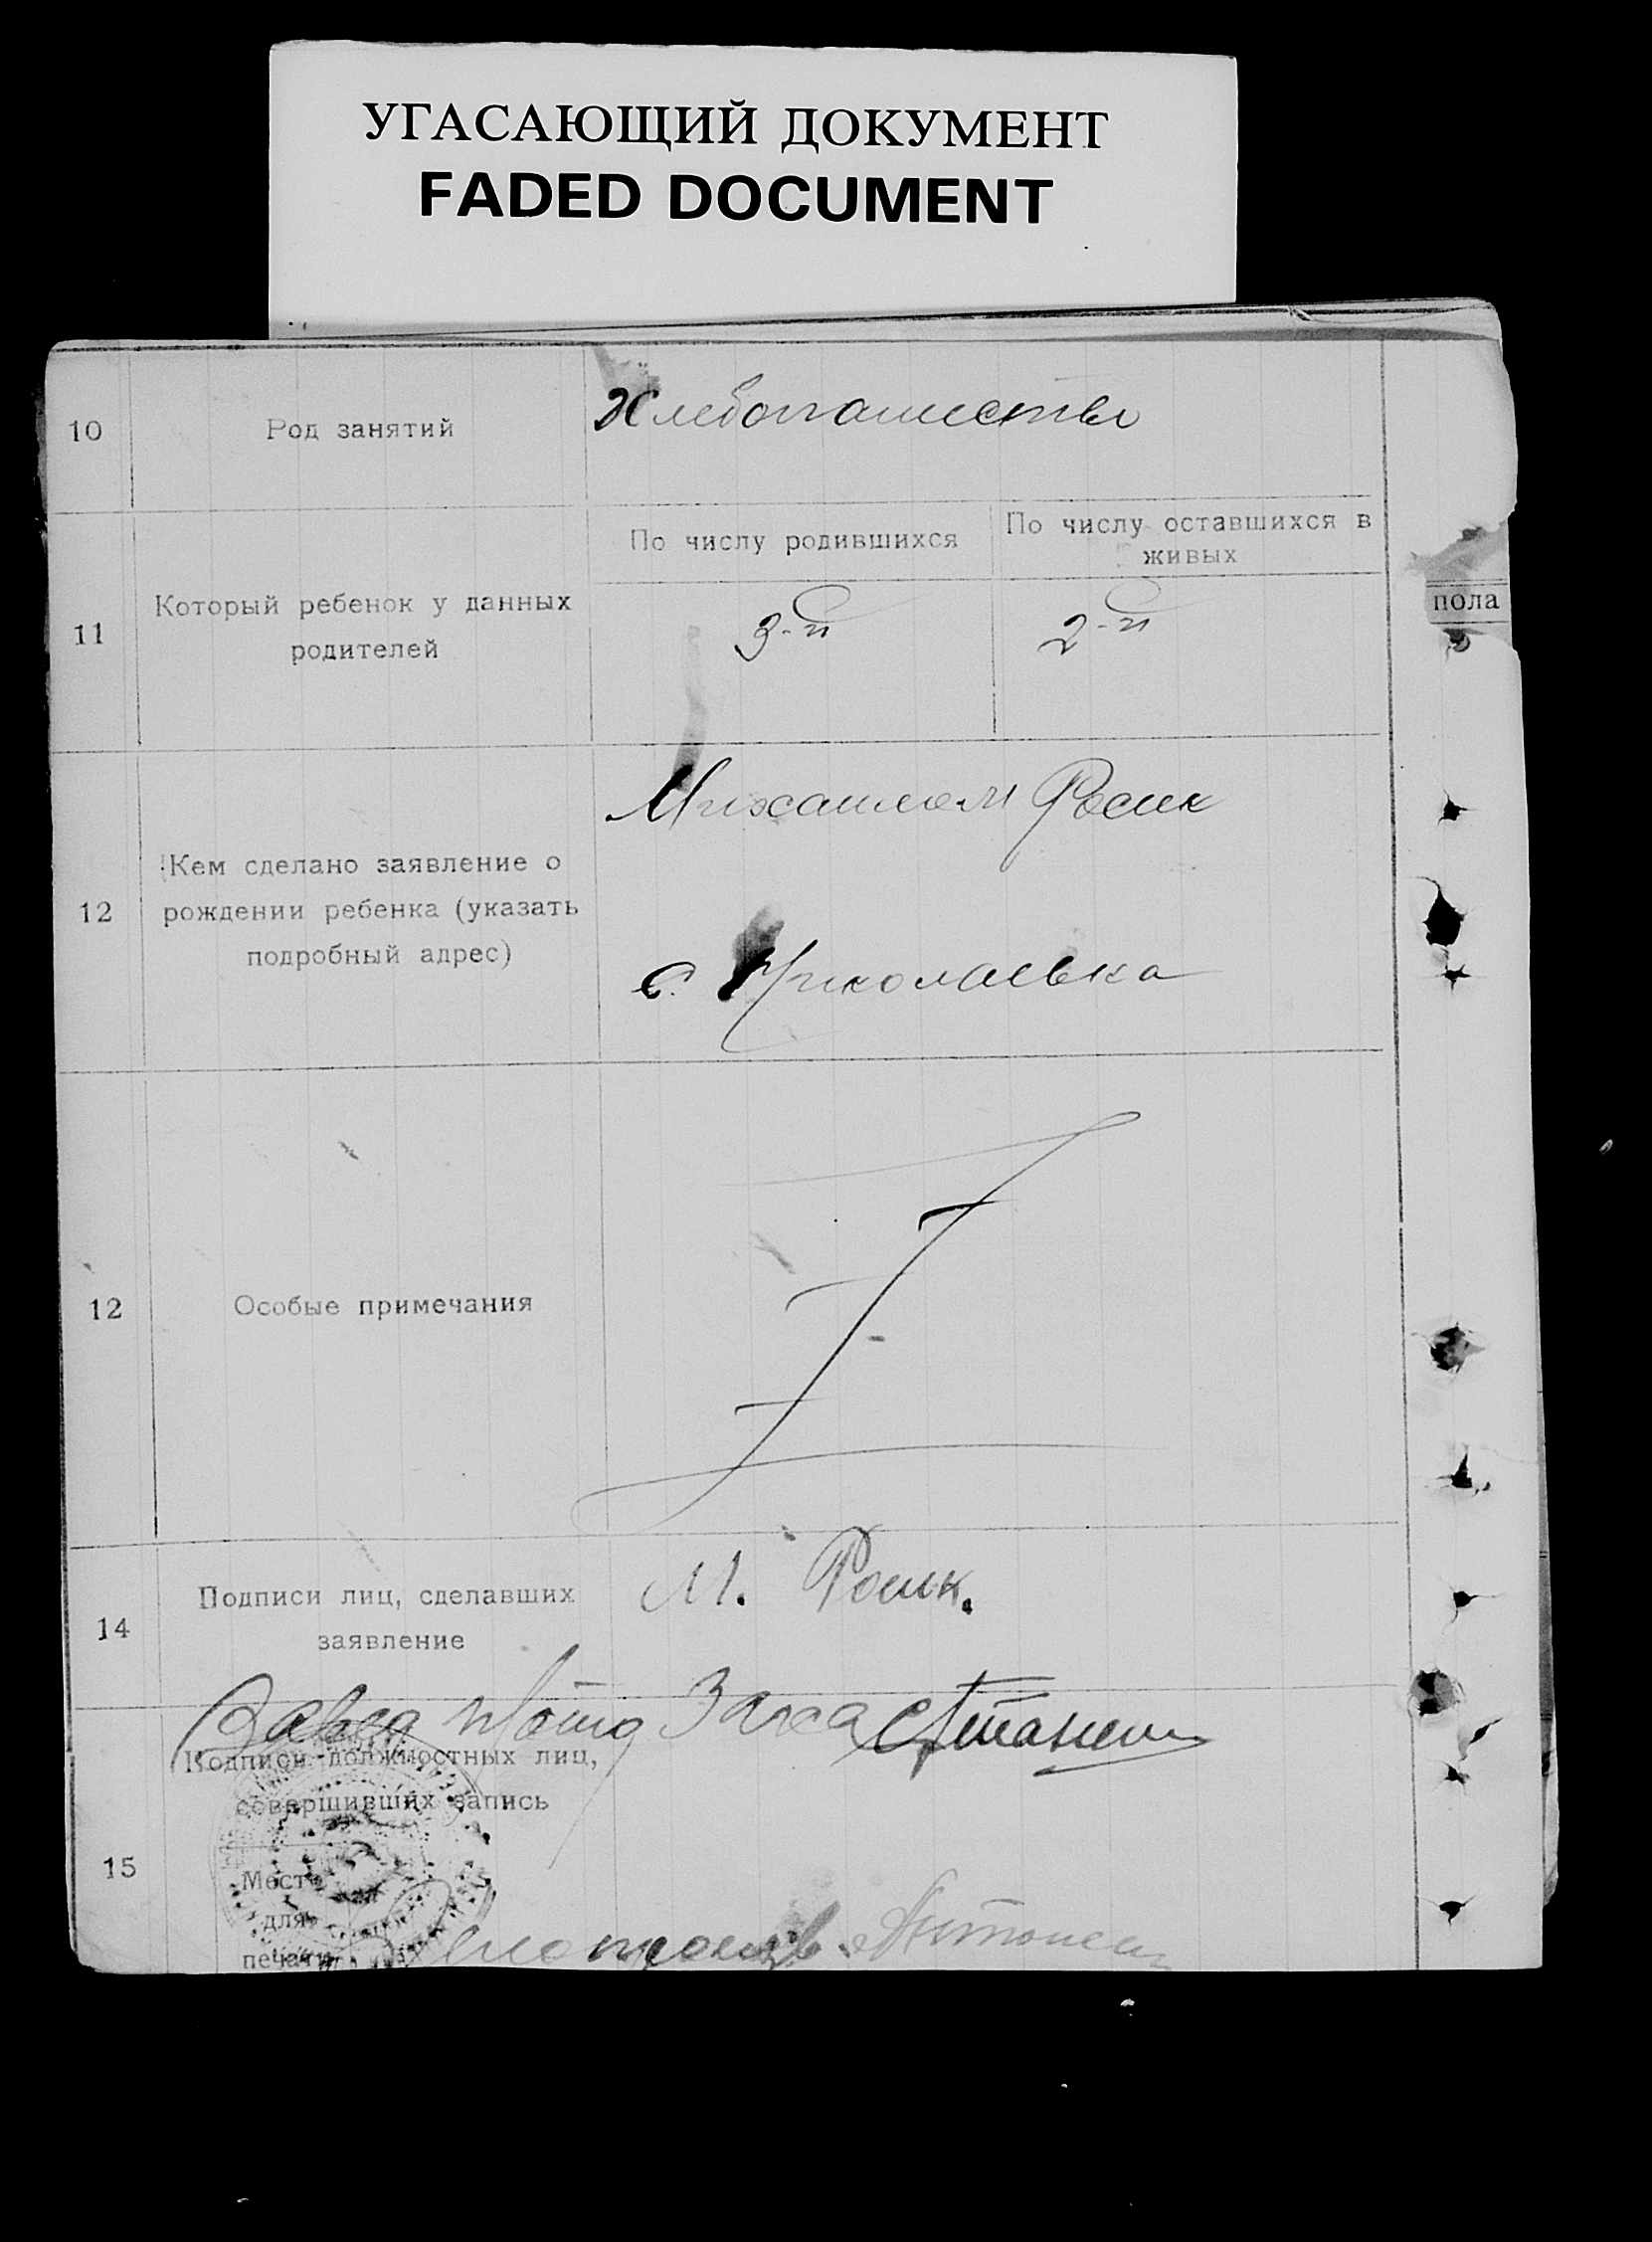 УГАСАЮЩИЙ ДОКУМЕНТ
FADED DOCUMENT
10
Род занятий
Хлебопашество
11
Который ребенок у данных
родителей
По числу родившихся
По числу оставшихся в
живых
3-й
2-й
пола
12
Кем сделано заявление о
рождении ребенка (указать
подробный адрес)
Михаилом Росик
с. Николаевка
12
Особые примечания
14
Подписи лиц, сделавших
заявление
М. Росик.
Завед Загса
15
Подписи должностных лиц,
совершивших запись
Место
для
печати